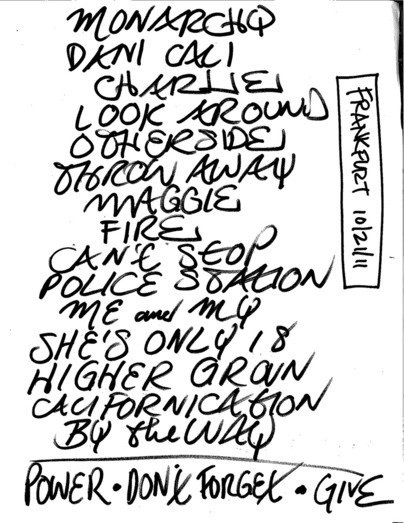 MONARCHY
DANI CALI
CHARLIE
LOOK AROUND
OTHERSIDE
THROW AWAY
MAGGIE
FIRE
CAN'T STOP
POLICE STATION
ME and MY
SHE'S ONLY 18
HIGHER GROUN
CALIFORNICATION
BY the WAY
POWER • DON'T FORGET • GIVE
FRANKFURT 10/21/11